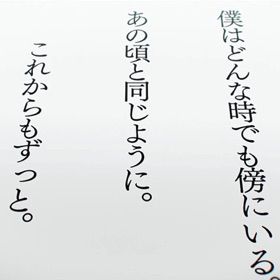 僕はどんな時でも傍にいる。
あの頃と同じように。
これからもずっと。